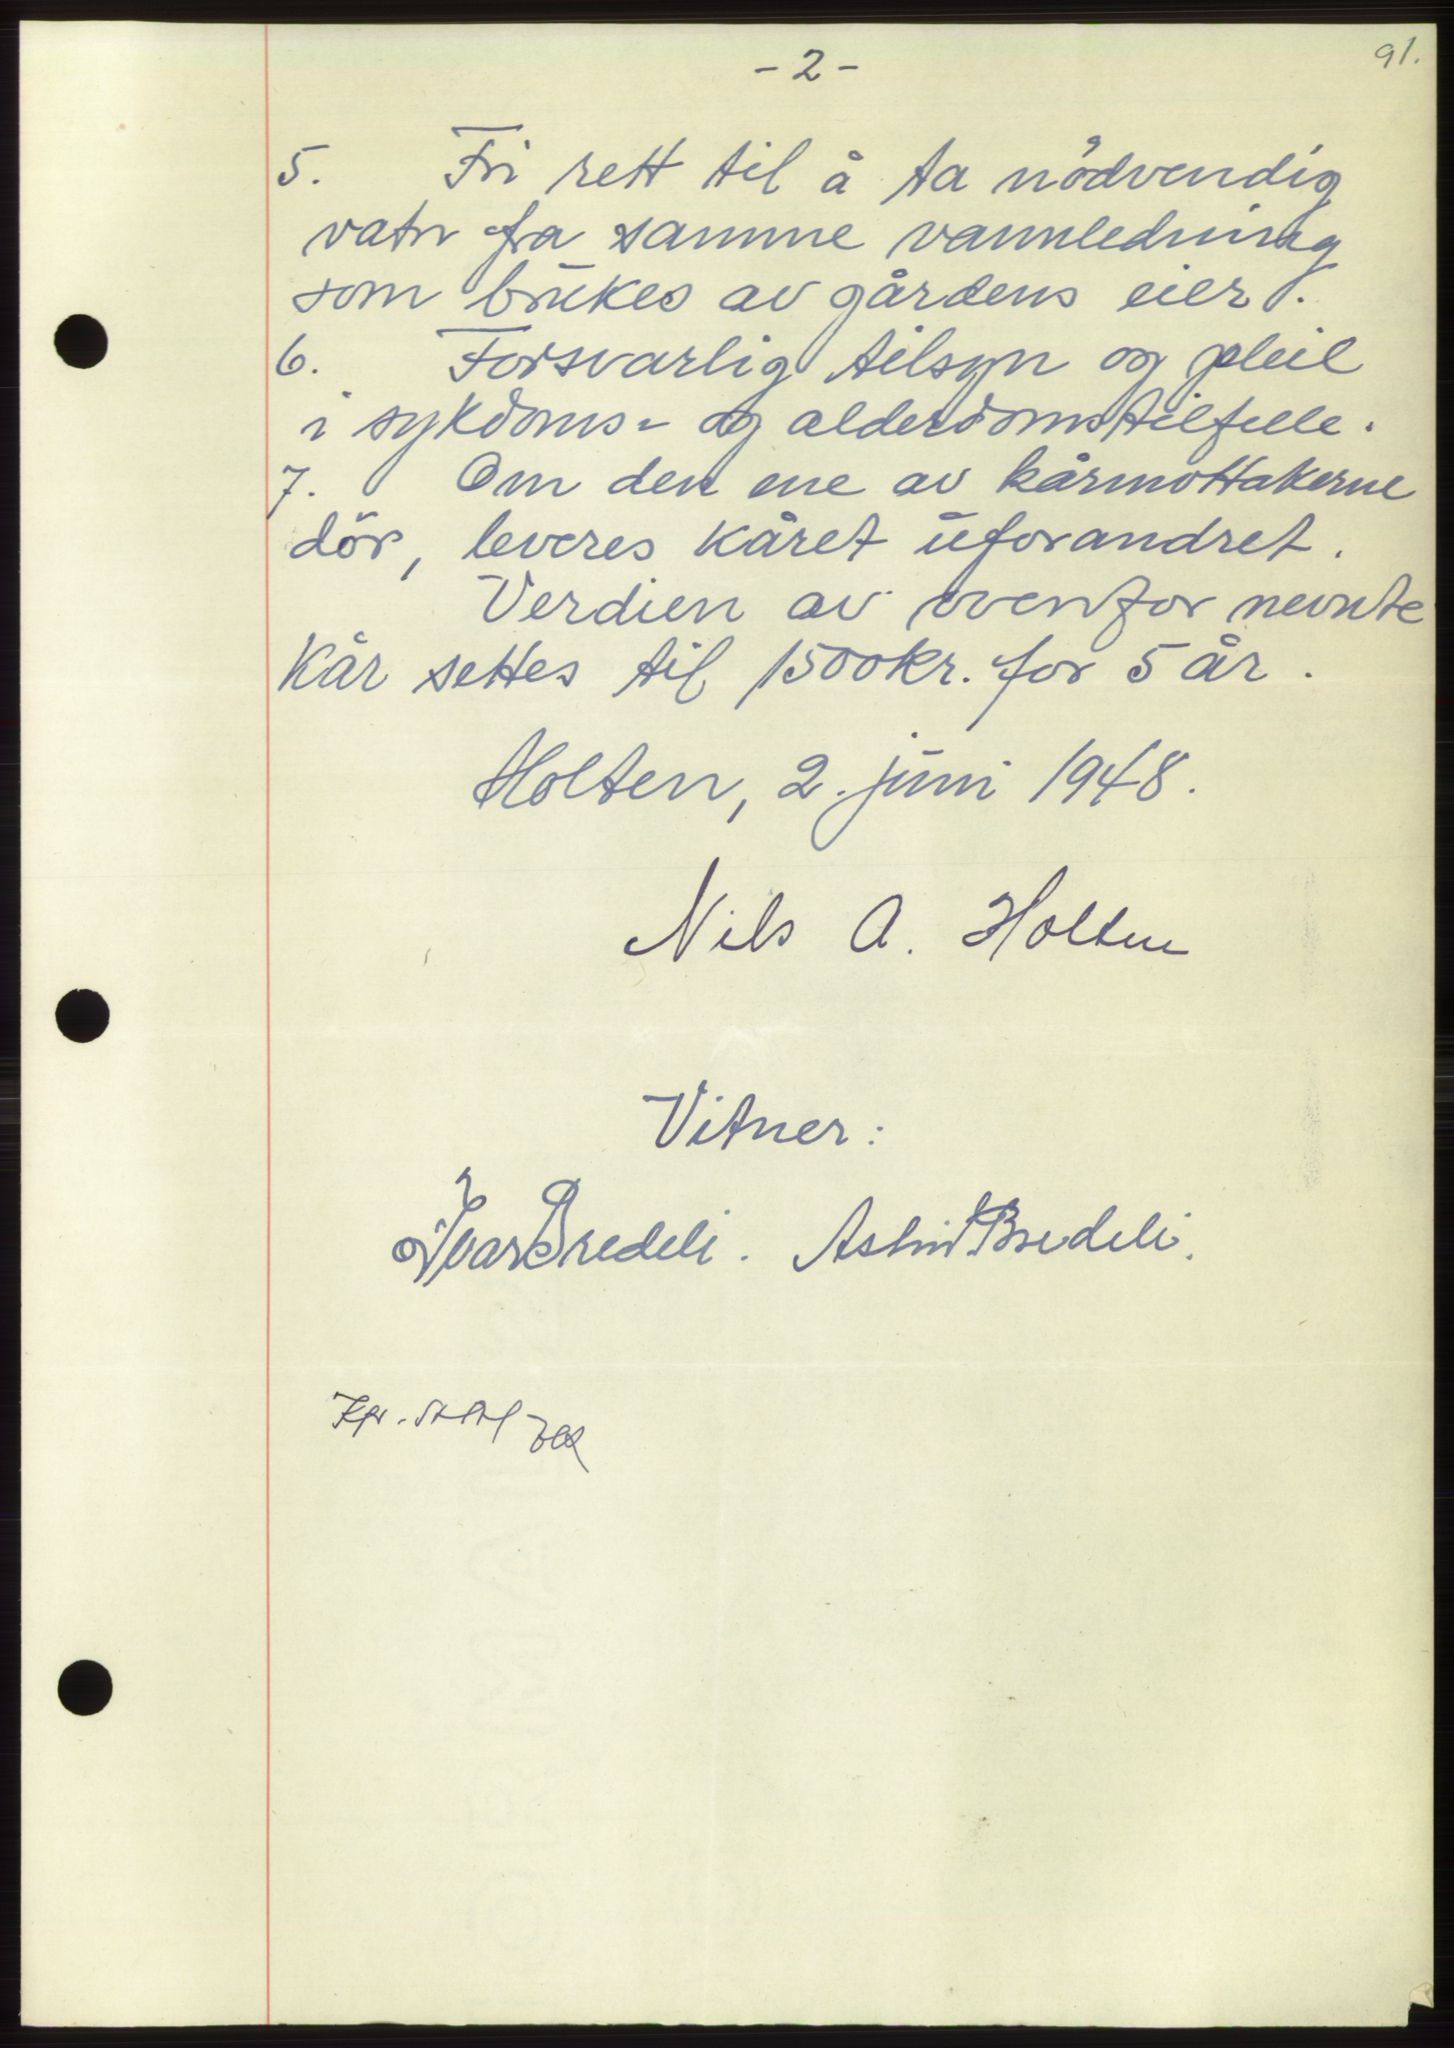 91.
- 2 -
5. Fri rett til å ta nödvendig
vatn fra samme vannledning
som brukes av gårdens eier.
6. Forsvarlig tilsyn og pleil
i sykdoms- og alderdomstilfelle.
7. Om den ene av kårmottakerne
dör, leveres kåret uforandret.
Verdien av ovenfor nevnte
kår settes til 1500kr. for 5 år.
Holten, 2. juni 1948.
Nils A. Holten
Vitner:
Ivar Bredeli. Astrid Bredeli.